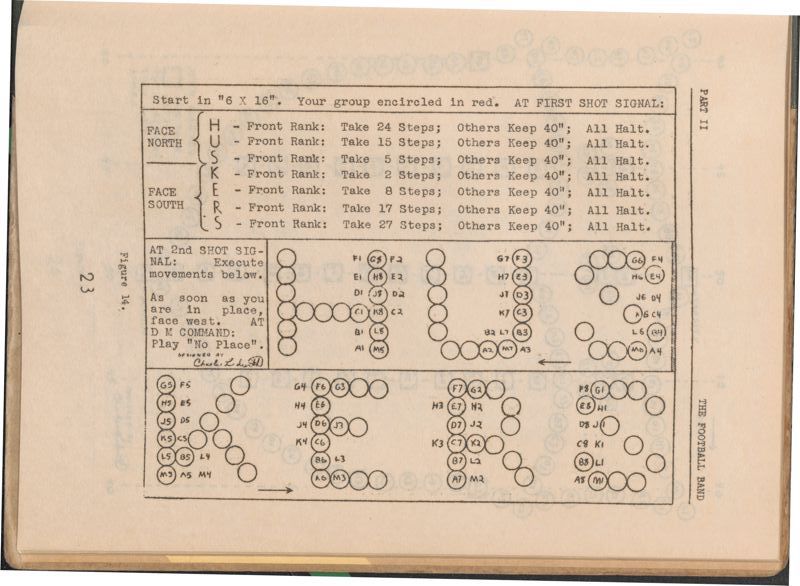 PART II
THE FOOTBALL BAND
Start in "6 X 16". Your group encircled in red. AT FIRST SHOT SIGNAL:
FACE NORTH
H - Front Rank: Take 24 Steps; Others Keep 40"; All Halt.
U - Front Rank: Take 15 Steps; Others Keep 40"; All Halt.
S - Front Rank: Take 5 Steps; Others Keep 40"; All Halt.
FACE SOUTH
K - Front Rank: Take 2 Steps; Others Keep 40"; All Halt.
E - Front Rank: Take 8 Steps; Others Keep 40"; All Halt.
R - Front Rank: Take 17 Steps; Others Keep 40"; All Halt.
S - Front Rank: Take 27 Steps; Others Keep 40"; All Halt.
AT 2nd SHOT SIG-
NAL: Execute
movements below.
As soon as you
are in place,
face west. AT
D M COMMAND:
Play "No Place".
DESIGNED BY
F1 G8 F2
E1 H8 E2
D1 J8 D2
C1 K8 C2
B1 L8
A1 M8
G7 F3
H7 E3
J7 D3
K7 C3
B2 L7 B3
A2 M7 A3
G6 F4
H6 E4
J6 D4
K6 C4
L6 B4
M6 A4
G5 F5
H5 E5
J5 D5
K5 C5
L5 B5 L4
M5 A5 M4
G4 F6 G3
H4 E6
J4 D6 J3
K4 C6
B6 L3
A6 M3
F7 G2
H3 E7 H2
D7 J2
K3 C7 K2
B7 L2
A7 M2
F8 G1
E8 H1
D8 J1
C8 K1
B8 L1
A8 M1
Figure 14.
23